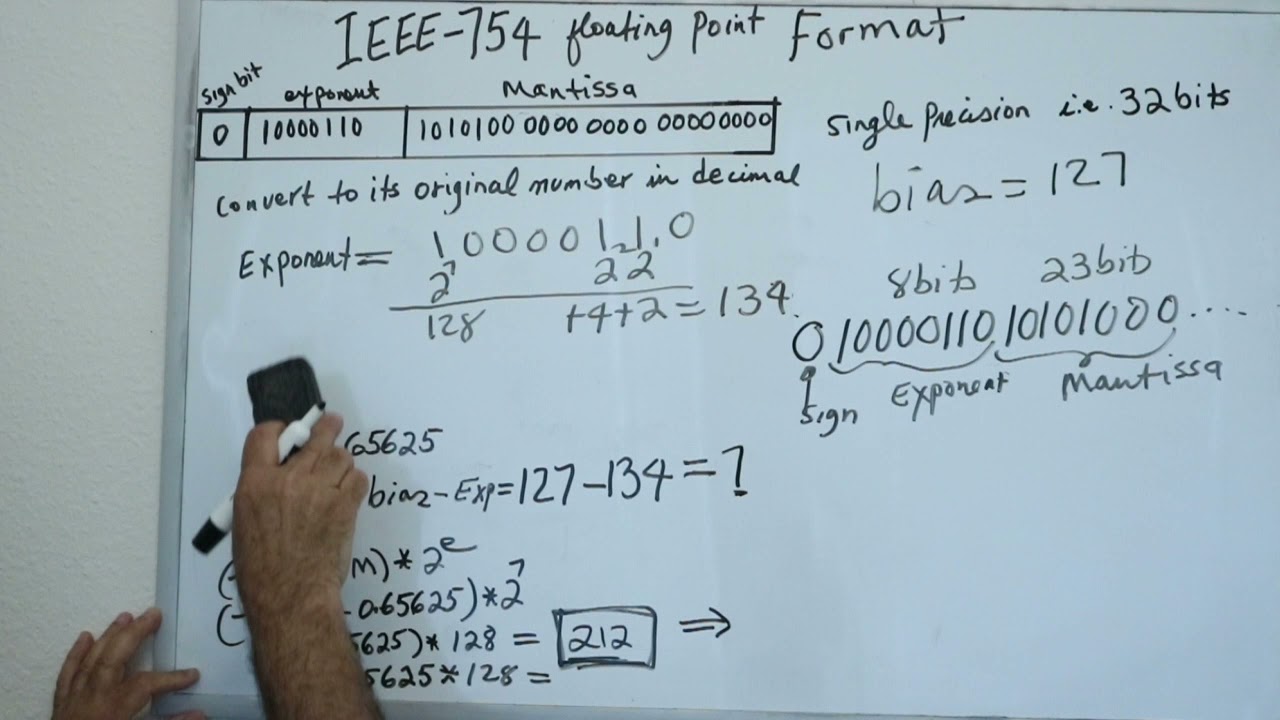 IEEE-754 floating Point Format
sign bit exponent Mantissa
0 10000110 1010100 0000 0000 00000000
single Precision i.e. 32bits
convert to its original number in decimal
bias = 127
Exponent = 10000110
2^7 2^2 2
128 +4+2 = 134
8bit 23bit
0 10000110 10101000....
sign Exponent Mantissa
65625
bias - Exp = 127 - 134 = ?
M) * 2^e
0.65625) * 2^7
5625) * 128 = 212 ⇒
5625 * 128 =